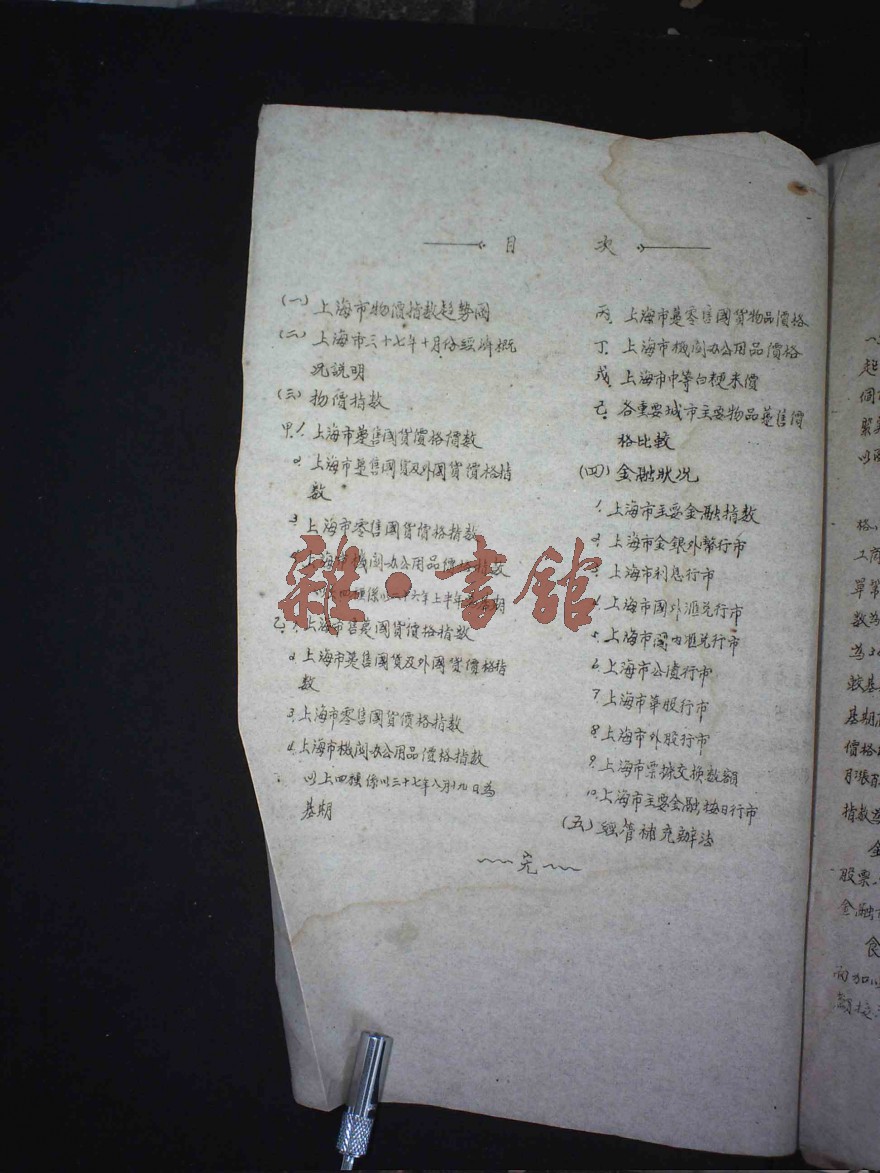 目 次
(一) 上海市物價指數趨勢圖
(二) 上海市三十七年十月份經濟概
况説明
(三) 物價指數
甲.1. 上海市躉售國貨價格指數
2. 上海市躉售國貨及外國貨價格指
數
3. 上海市零售國貨價格指數
上海市機関办公用品價格指數
四種係以二十六年上半年為基期
乙.1. 上海市售躉國貨價格指數
2. 上海市躉售國貨及外國貨價格指
數
3. 上海市零售國貨價格指數
4. 上海市機関办公用品價格指數
以上四種係以三十七年八月十九日為
基期
丙. 上海市躉零售國貨物品價格
丁. 上海市機関办公用品價格
戎. 上海市中等白粳米價
己. 各重要城市主要物品躉售價
格比較
(四) 金融狀况
1. 上海市主要金融指數
2. 上海市金銀外幣行市
3. 上海市利息行市
4. 上海市國外滙兑行市
5. 上海市國内滙兑行市
6. 上海市公債行市
7. 上海市華股行市
8. 上海市外股行市
9. 上海市票據交換數額
10. 上海市主要金融每日行市
(五) 經管補充辦法
完
雜·書館
起
個
以
格
工商
單
數為
為
較基
基期
價格
月漲
指數
金
股票
金融
食
向加以